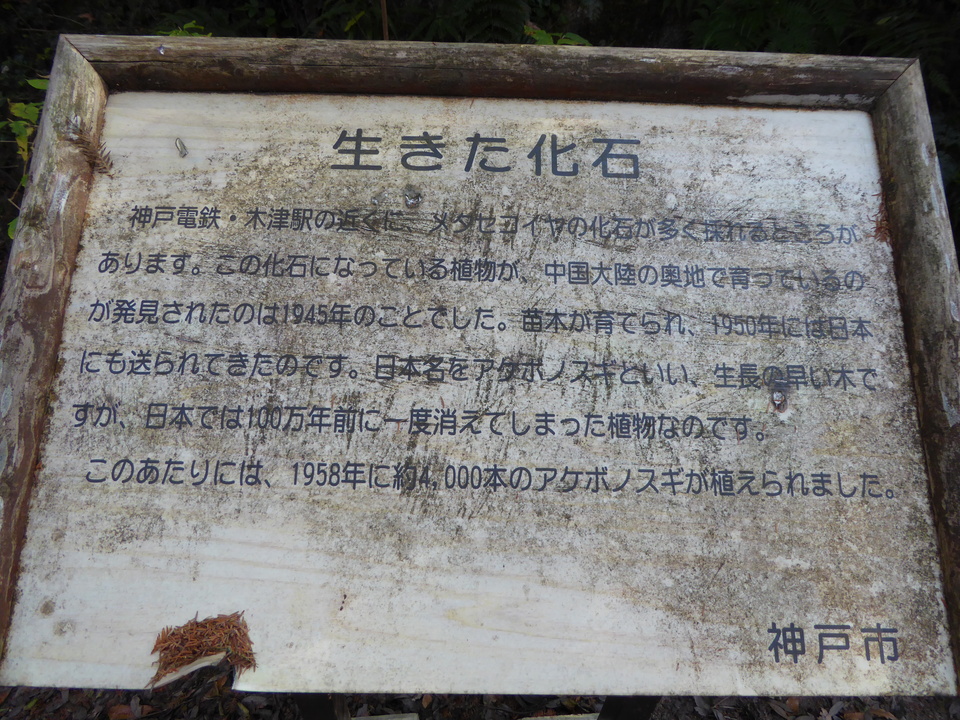 生きた化石
神戸電鉄・木津駅の近くに、メタセコイヤの化石が多く採れるところが
あります。この化石になっている植物が、中国大陸の奥地で育っているの
が発見されたのは1945年のことでした。苗木が育てられ、1950年には日本
にも送られてきたのです。日本名をアケボノスギといい、生長の早い木で
すが、日本では100万年前に一度消えてしまった植物なのです。
このあたりには、1958年に約4,000本のアケボノスギが植えられました。
神戸市